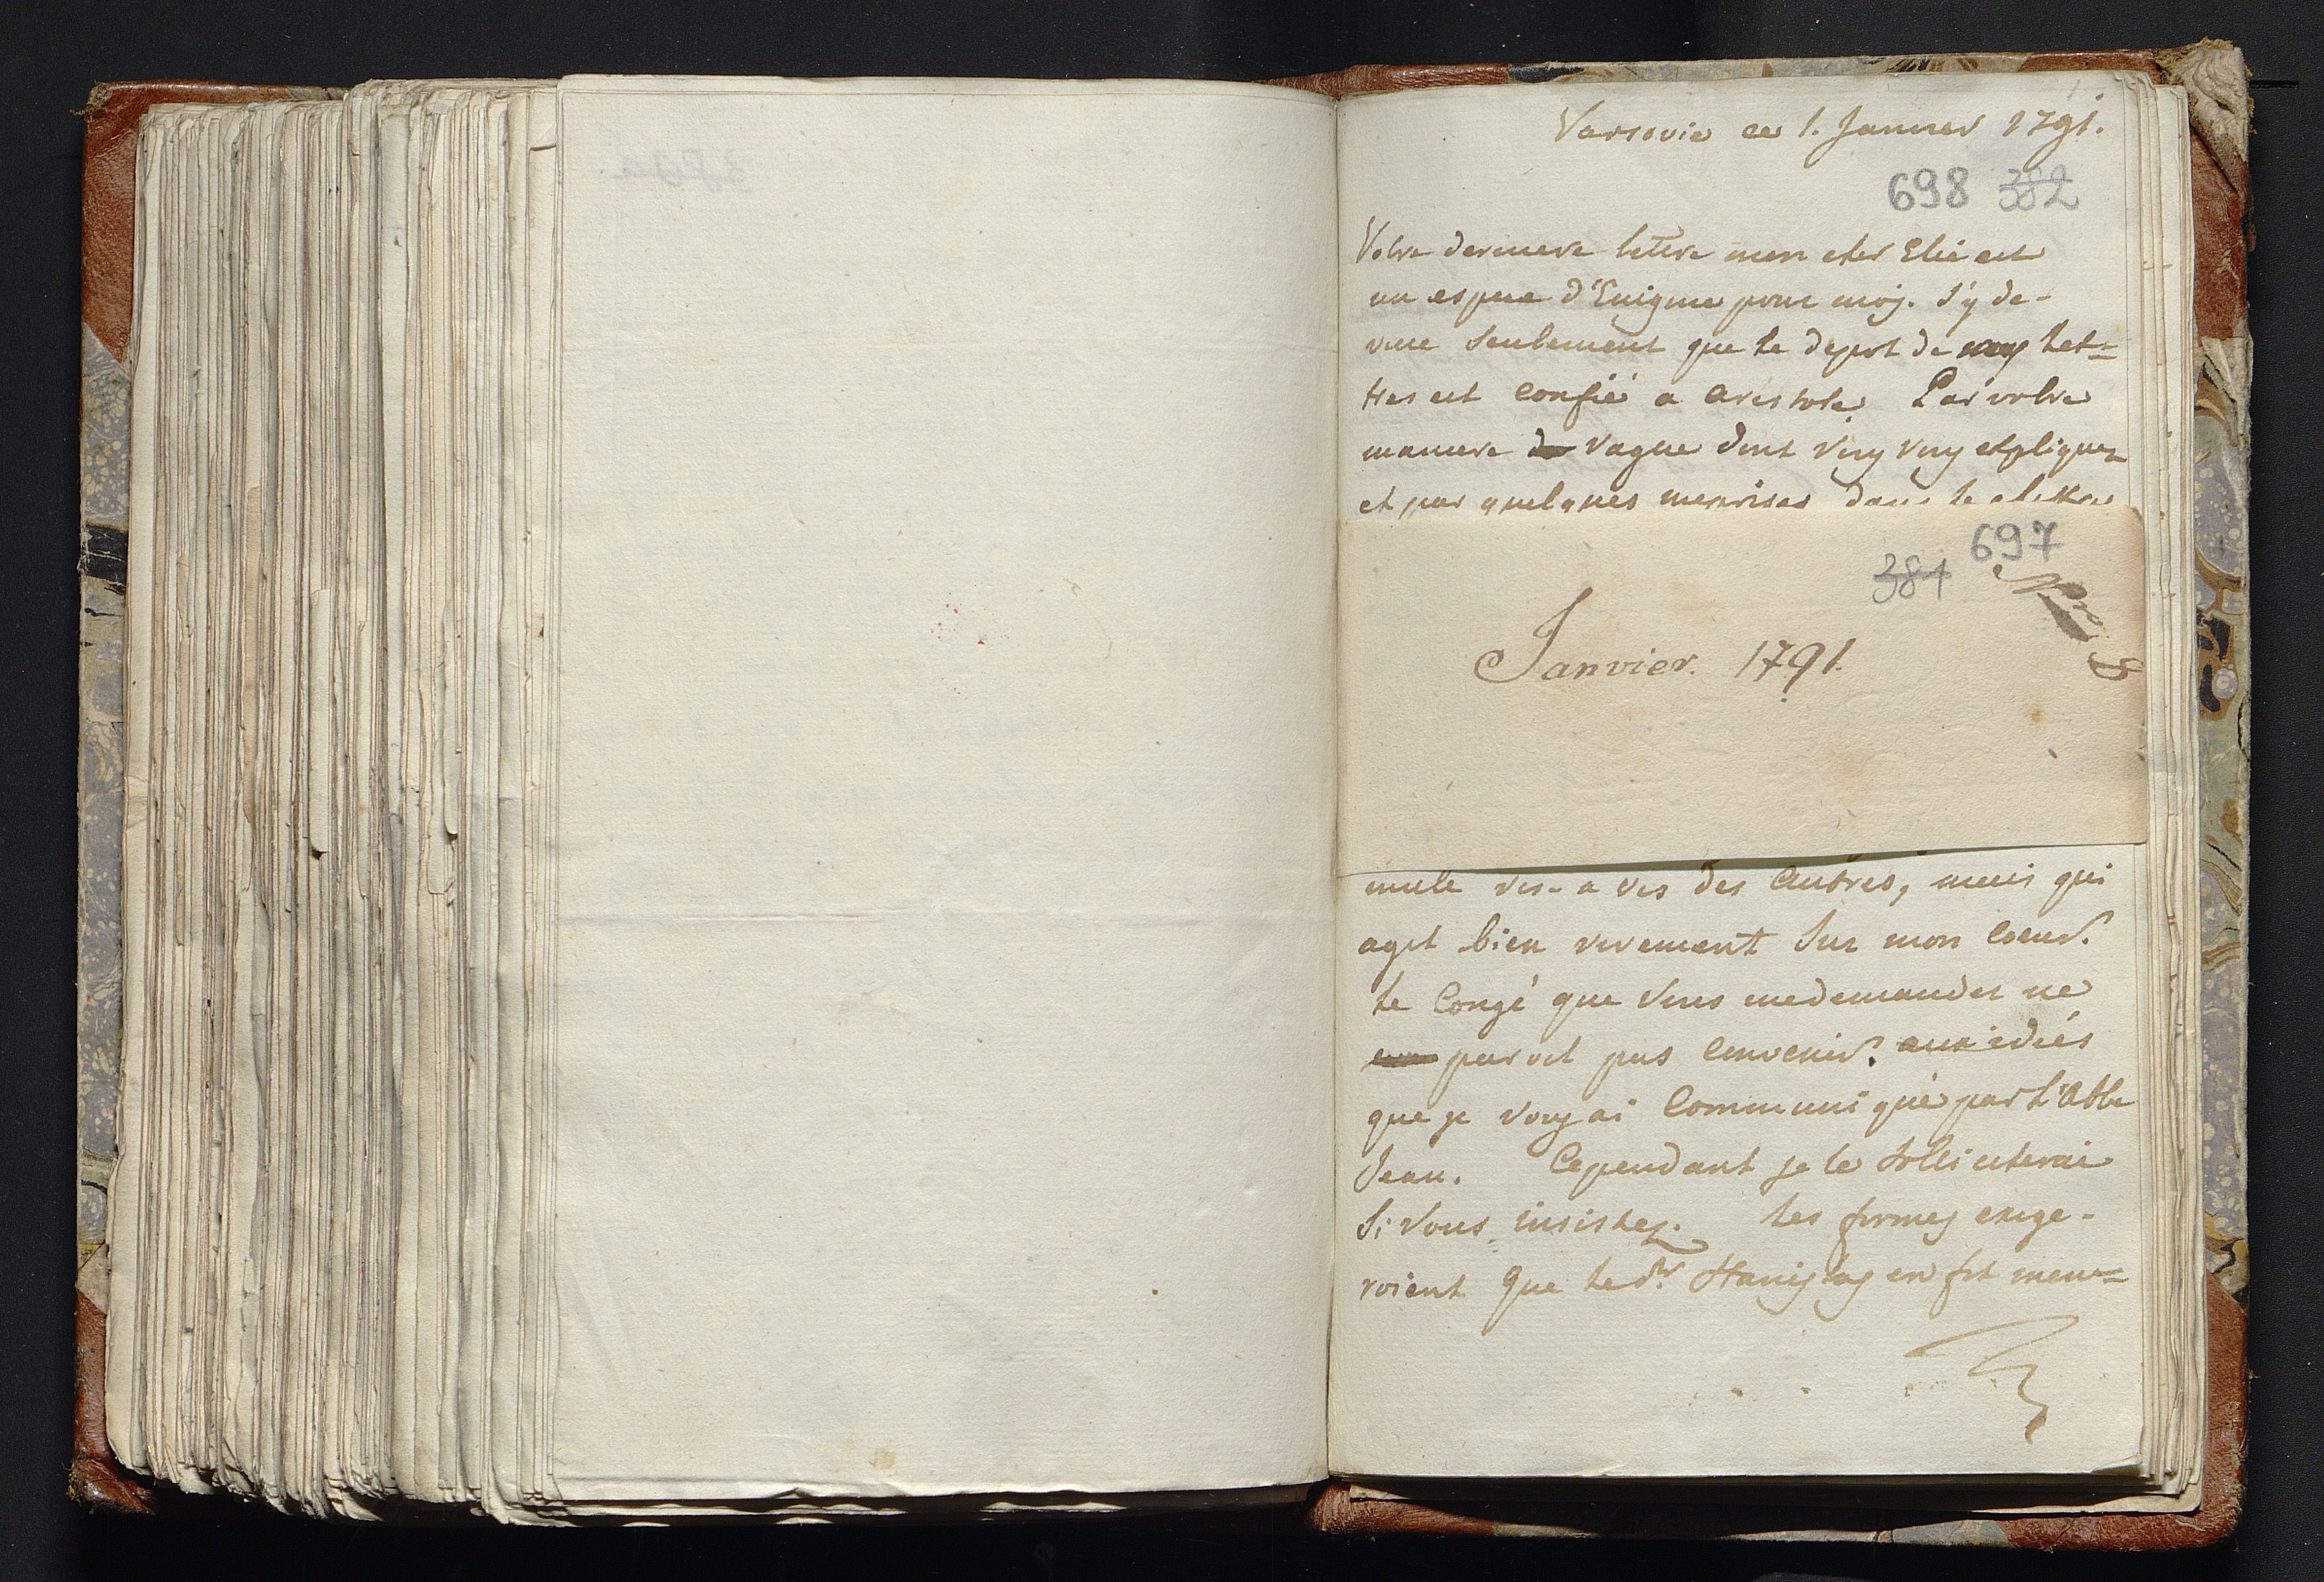 Varsovie ce 1. Janvier 1791.
698 382
Votre derniere lettre mon cher Elie est
un espece d'Enigme pour moy. J'y de-
vine seulement que le depot de mes let=
tres est confié a Aristote. Par votre
maniere vague dont vous vous expliquez
et par quelques meprises dans le
697
381
Janvier. 1791.
mule vis-a vis des Autres, mais qui
agit bien vivement sur mon Coeur.
Le Congé que Vous me demandez ne
paroit pas Convenir aux idées
que je vous ai Communiqué par l'Abbe
Jean. Cependant je le solliciterai
Si Vous insistez. Les formes exige-
roient que le Sr. Stanislas en fit men=